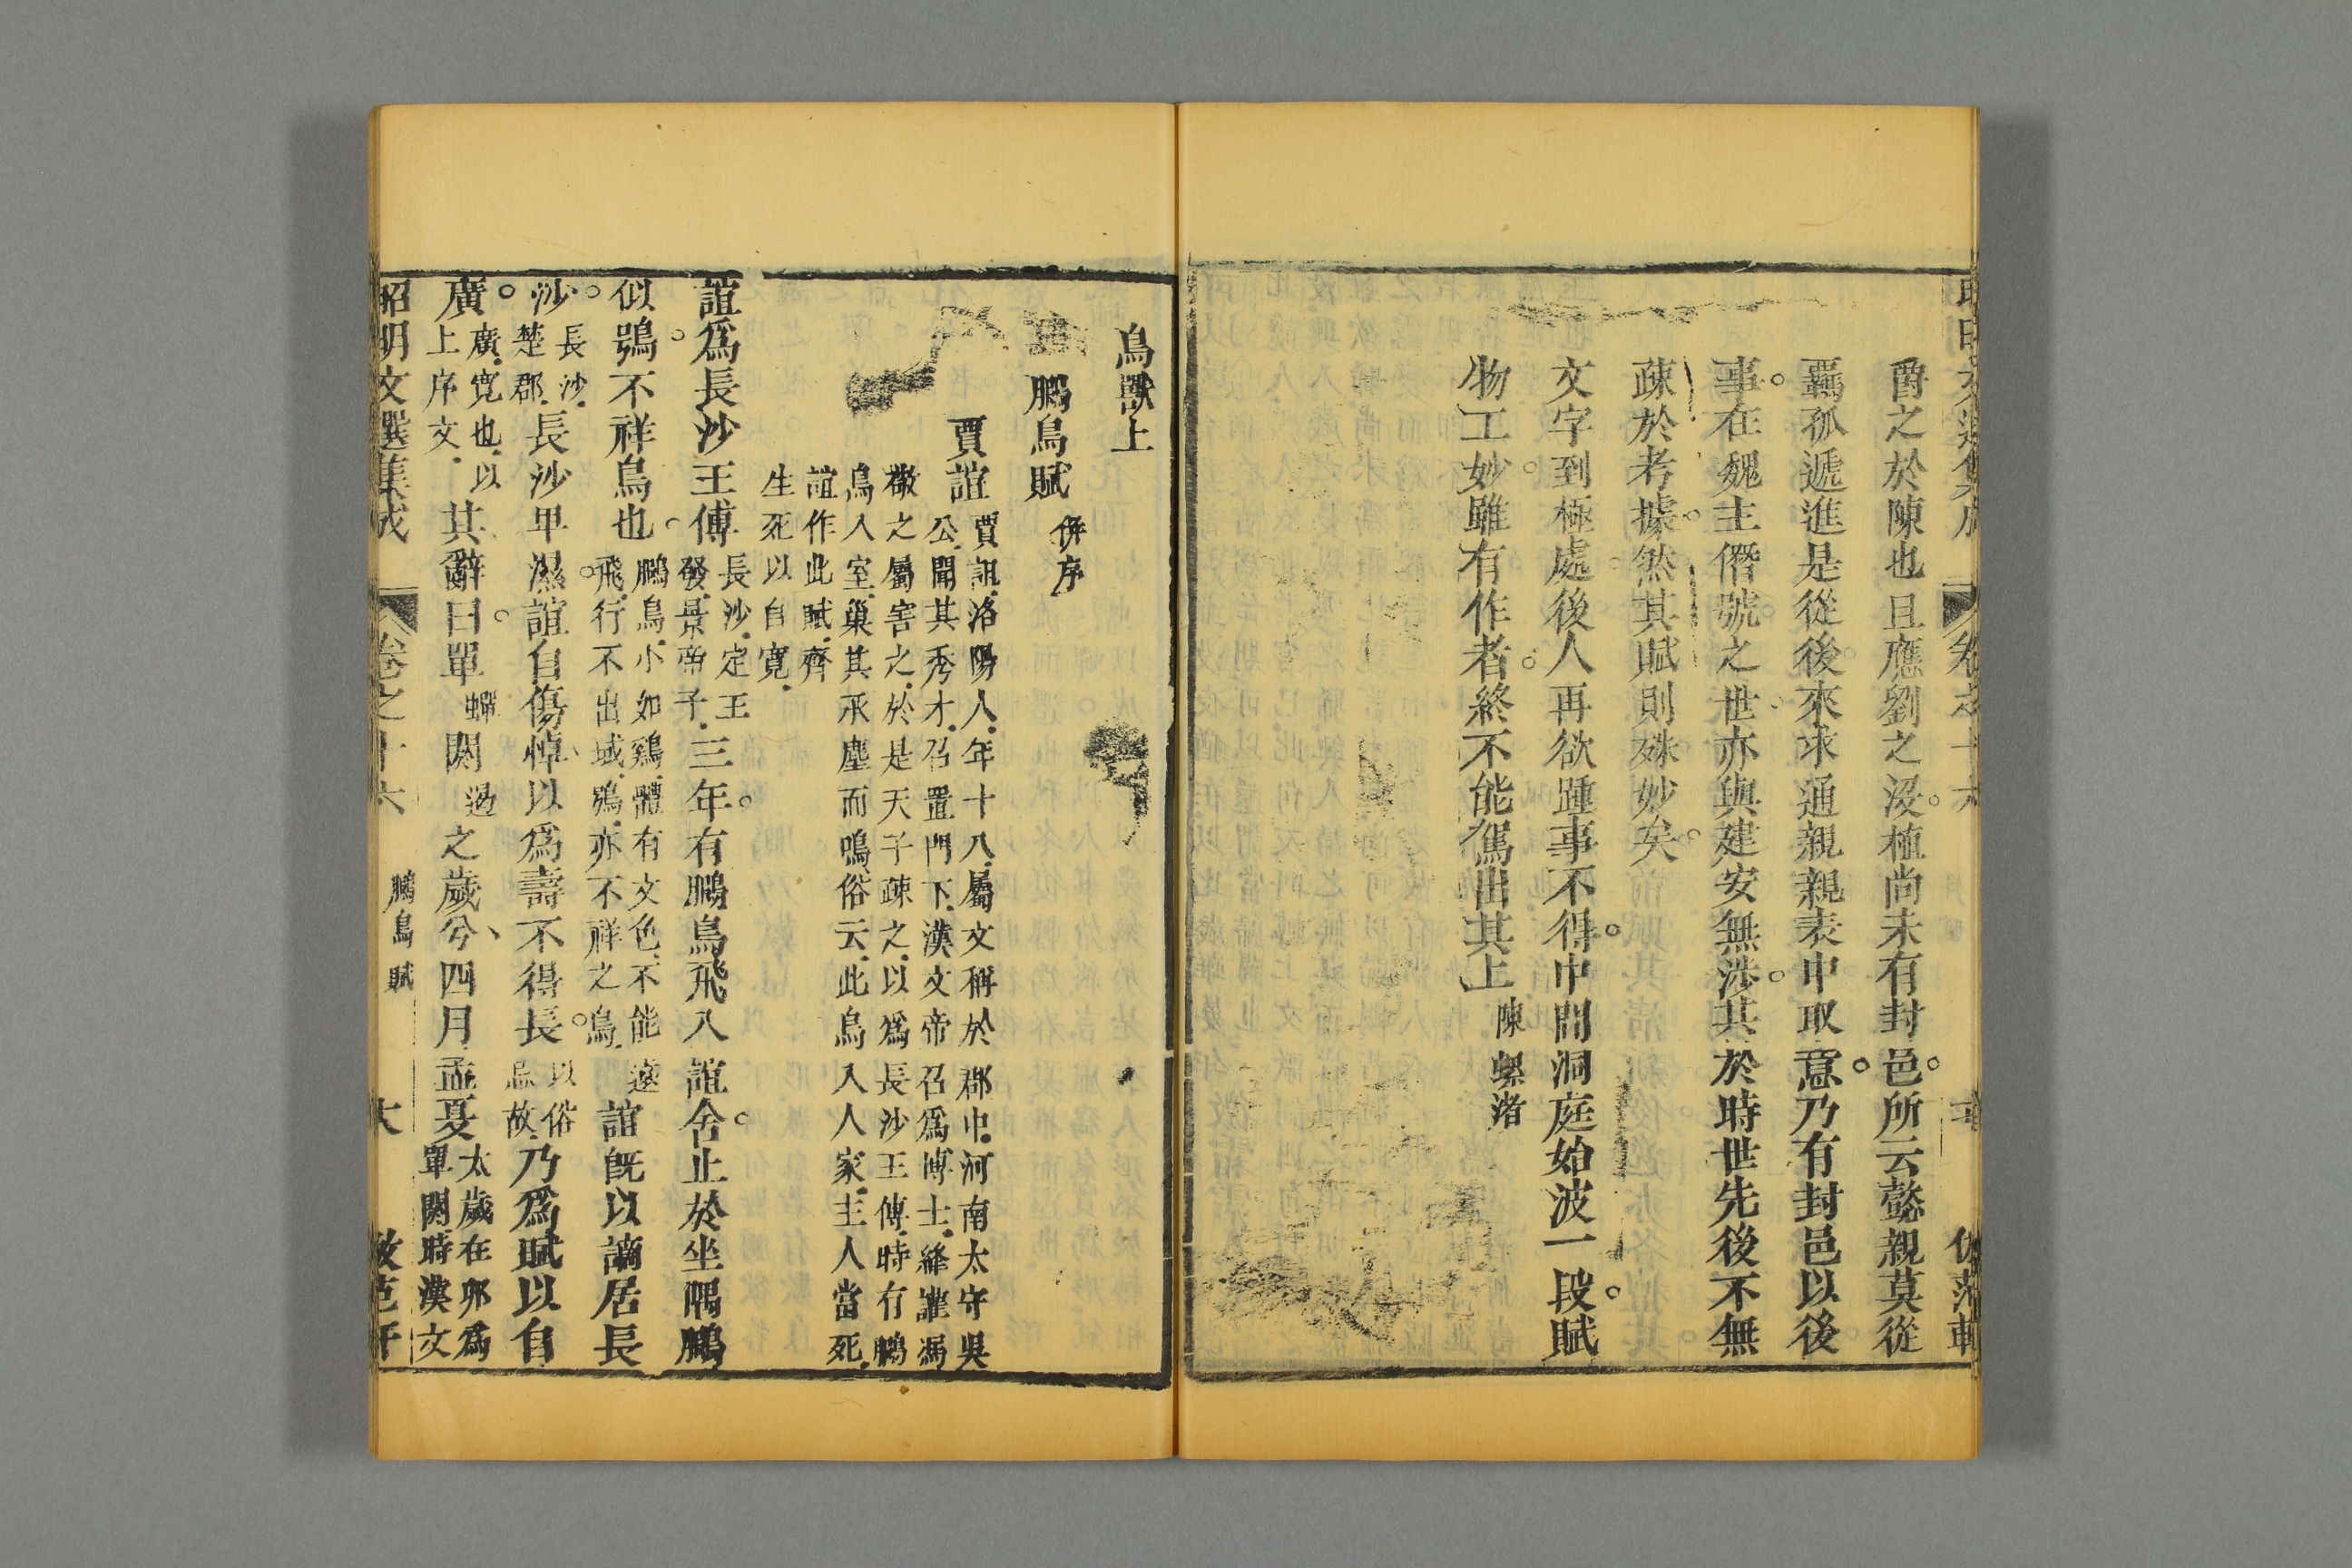 爵之於陳也且應劉之沒植尚未有封邑所云懿親莫從
羈孤遞進是從後來求通親親表中取意乃有封邑以後
事在魏主僭號之世亦與建安無涉其於時世先後不無
疎於考據然其賦則殊妙矣
文字到極處後人再欲踵事不得中間洞庭始波一段賦
物工妙雖有作者終不能駕出其上 陳螺渚
鳥獸上
鵩鳥賦 併序
賈誼 賈誼洛陽人年十八屬文稱於郡中河南太守吳
公聞其秀才召置門下漢文帝召爲博士絳灌馮
敬之屬害之於是天子疎之以爲長沙王傅時有鵩
鳥入室巢其承塵而鳴俗云此鳥入人家主人當死
誼作此賦齊
生死以自寬
誼爲長沙王傅 長沙定王發景帝子 三年有鵩鳥飛入誼舍止於坐隅鵩
似鴞不祥鳥也 鵩鳥小如鷄體有文色不能遠飛行不出域鴞亦不祥之鳥 誼旣以謫居長
沙 長沙楚郡 長沙卑濕誼自傷悼以爲壽不得長 以俗忌故 乃爲賦以自
廣 廣寬也以上序文 其辭曰單 蟬 閼 遏 之歲兮四月孟夏 太歲在卯爲單閼時漢文
昭明文選集成 卷之十六 鵩鳥賦